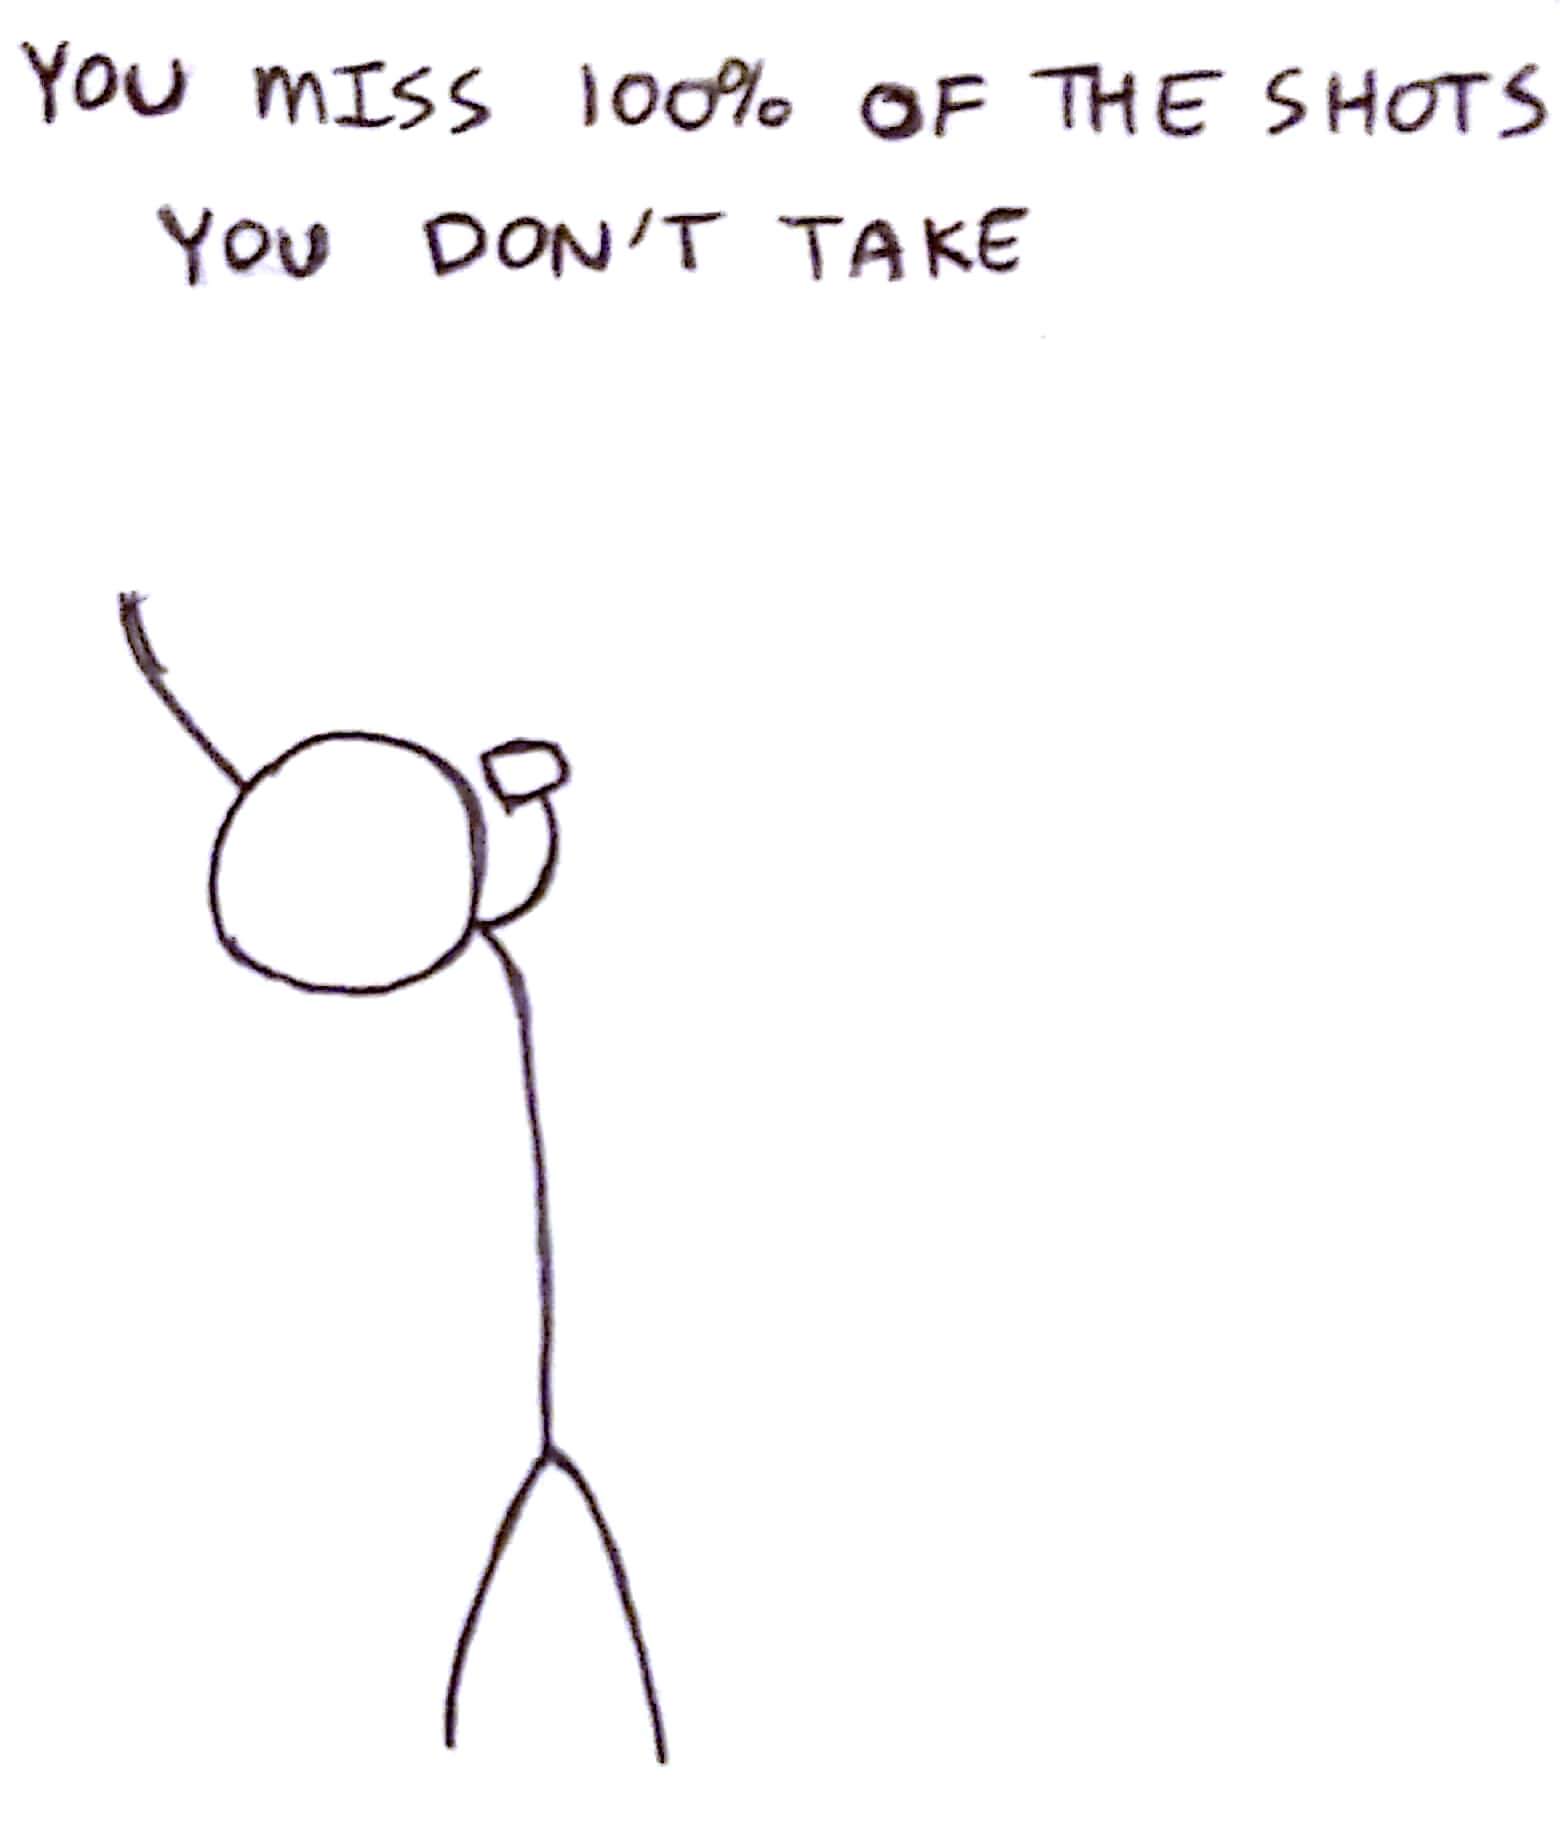 YOU MISS 100% OF THE SHOTS
YOU DON'T TAKE